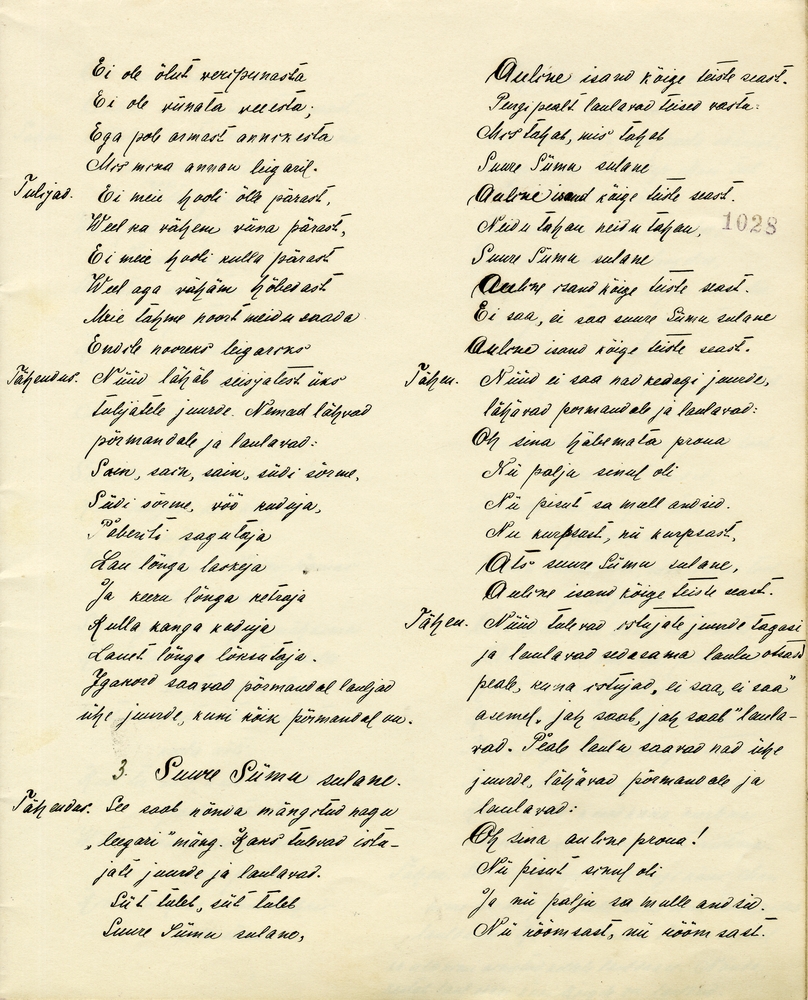 Ei ole õlut veripunasta
Ei ole viinata veeesta;
Ega pole armast annikesta
Mis mina annan leigaril.
Tulijad. Ei meie hooli õlle pärast,
Weel ka vähem viina pärast,
Ei meie hooli kulla pärast
Weel aga vähäm hõbedast
Meie tahme noort neidu saada
Endile nooreks leigariks
Tähendus. Nüüd lähäb seisjatest üks
tulijatele juurde. Nemad lähvad
põrmandale ja laulavad:
Sain, sain, sain, siidi sõrme,
Siidi sõrme, vöö kuduja,
Paberiti sagutaja
Lau lõnga laskeja
Ja keeru lõnga ketraja
Kulla kanga kuduja
Lauet lõnga lõksutaja.
Igakord saavad põrmandal lauljad
ühe juurde, kuni kõik põrmandal on.
3. Suure Siimu sulane.
Tähendus. See saab nõnda mängitud nagu
„leegari" mäng. Kaks tulevad istu-
jate juurde ja laulavad.
Siit tuleb, siit tuleb
Suure Siimu sulane,
Auline isand kõige teiste seast.
Pengi pealt laulavad teised vasta:
Mis tahab, mis tahab
Suure Siimu sulane
Auline isand kõige teiste seast.
Neidu tahan neidu tahan,
1028
Suure Siimu sulane
Auline isand kõige teiste seast.
Ei saa, ei saa suure Siimu sulane
Auline isand kõige teiste seast.
Tähen. Nüüd ei saa nad kedagi juurde,
lähävad pormandale ja laulavad:
Oh sina häbemata proua
Nii palju sinul oli
Nii pisut sa mull andsid.
Nii kurpsast, nii kurpsast,
Ats suure Siimu sulane,
Auline isand kõige teiste seast.
Tähen. Nüüd tulevad istujate juurde tagasi
ja laulavad sedasama laulu otsast
peale, kuna istujad „ei saa, ei saa"
asemel „jah saab, jah saab" laula-
vad. Peale laulu saavad nad ühe
juurde, lähävad põrmandale ja
laulavad:
Oh sina auline proua!
Nii pisut sinul oli
Ja nii palju sa mulle andsid.
Nii rõõmsast, nii rõõmsast.